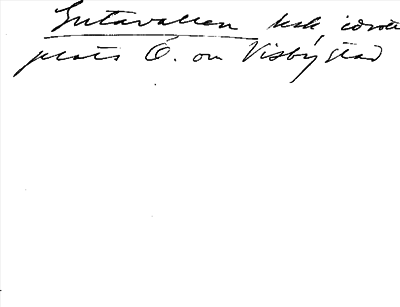 Gutavallen bek, idrotts
plats Ö. om Visby stad